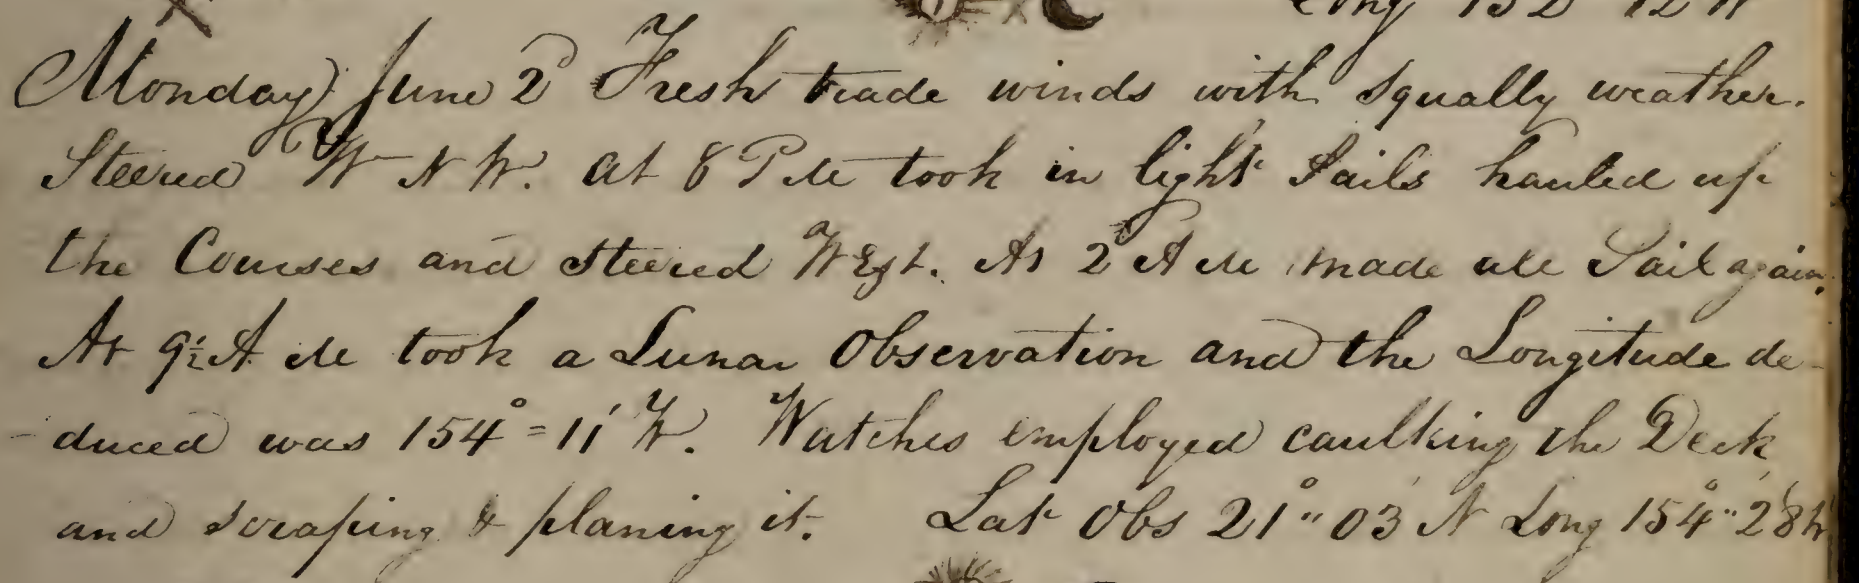 Long 152 12 W
Monday June 2d Fresh trade winds with squally weather.
Steered W N W. At 8 P M took in light Sails hauled up
the Courses and steered West. At 2 A M made all Sail again.
At 9½ A M took a Lunar Observation and the Longitude de-
-duced was 154°=11' W. Watches employed caulking the Deck
and scraping & planing it. Lat Obs 21°"03' N Long 154°"28 W